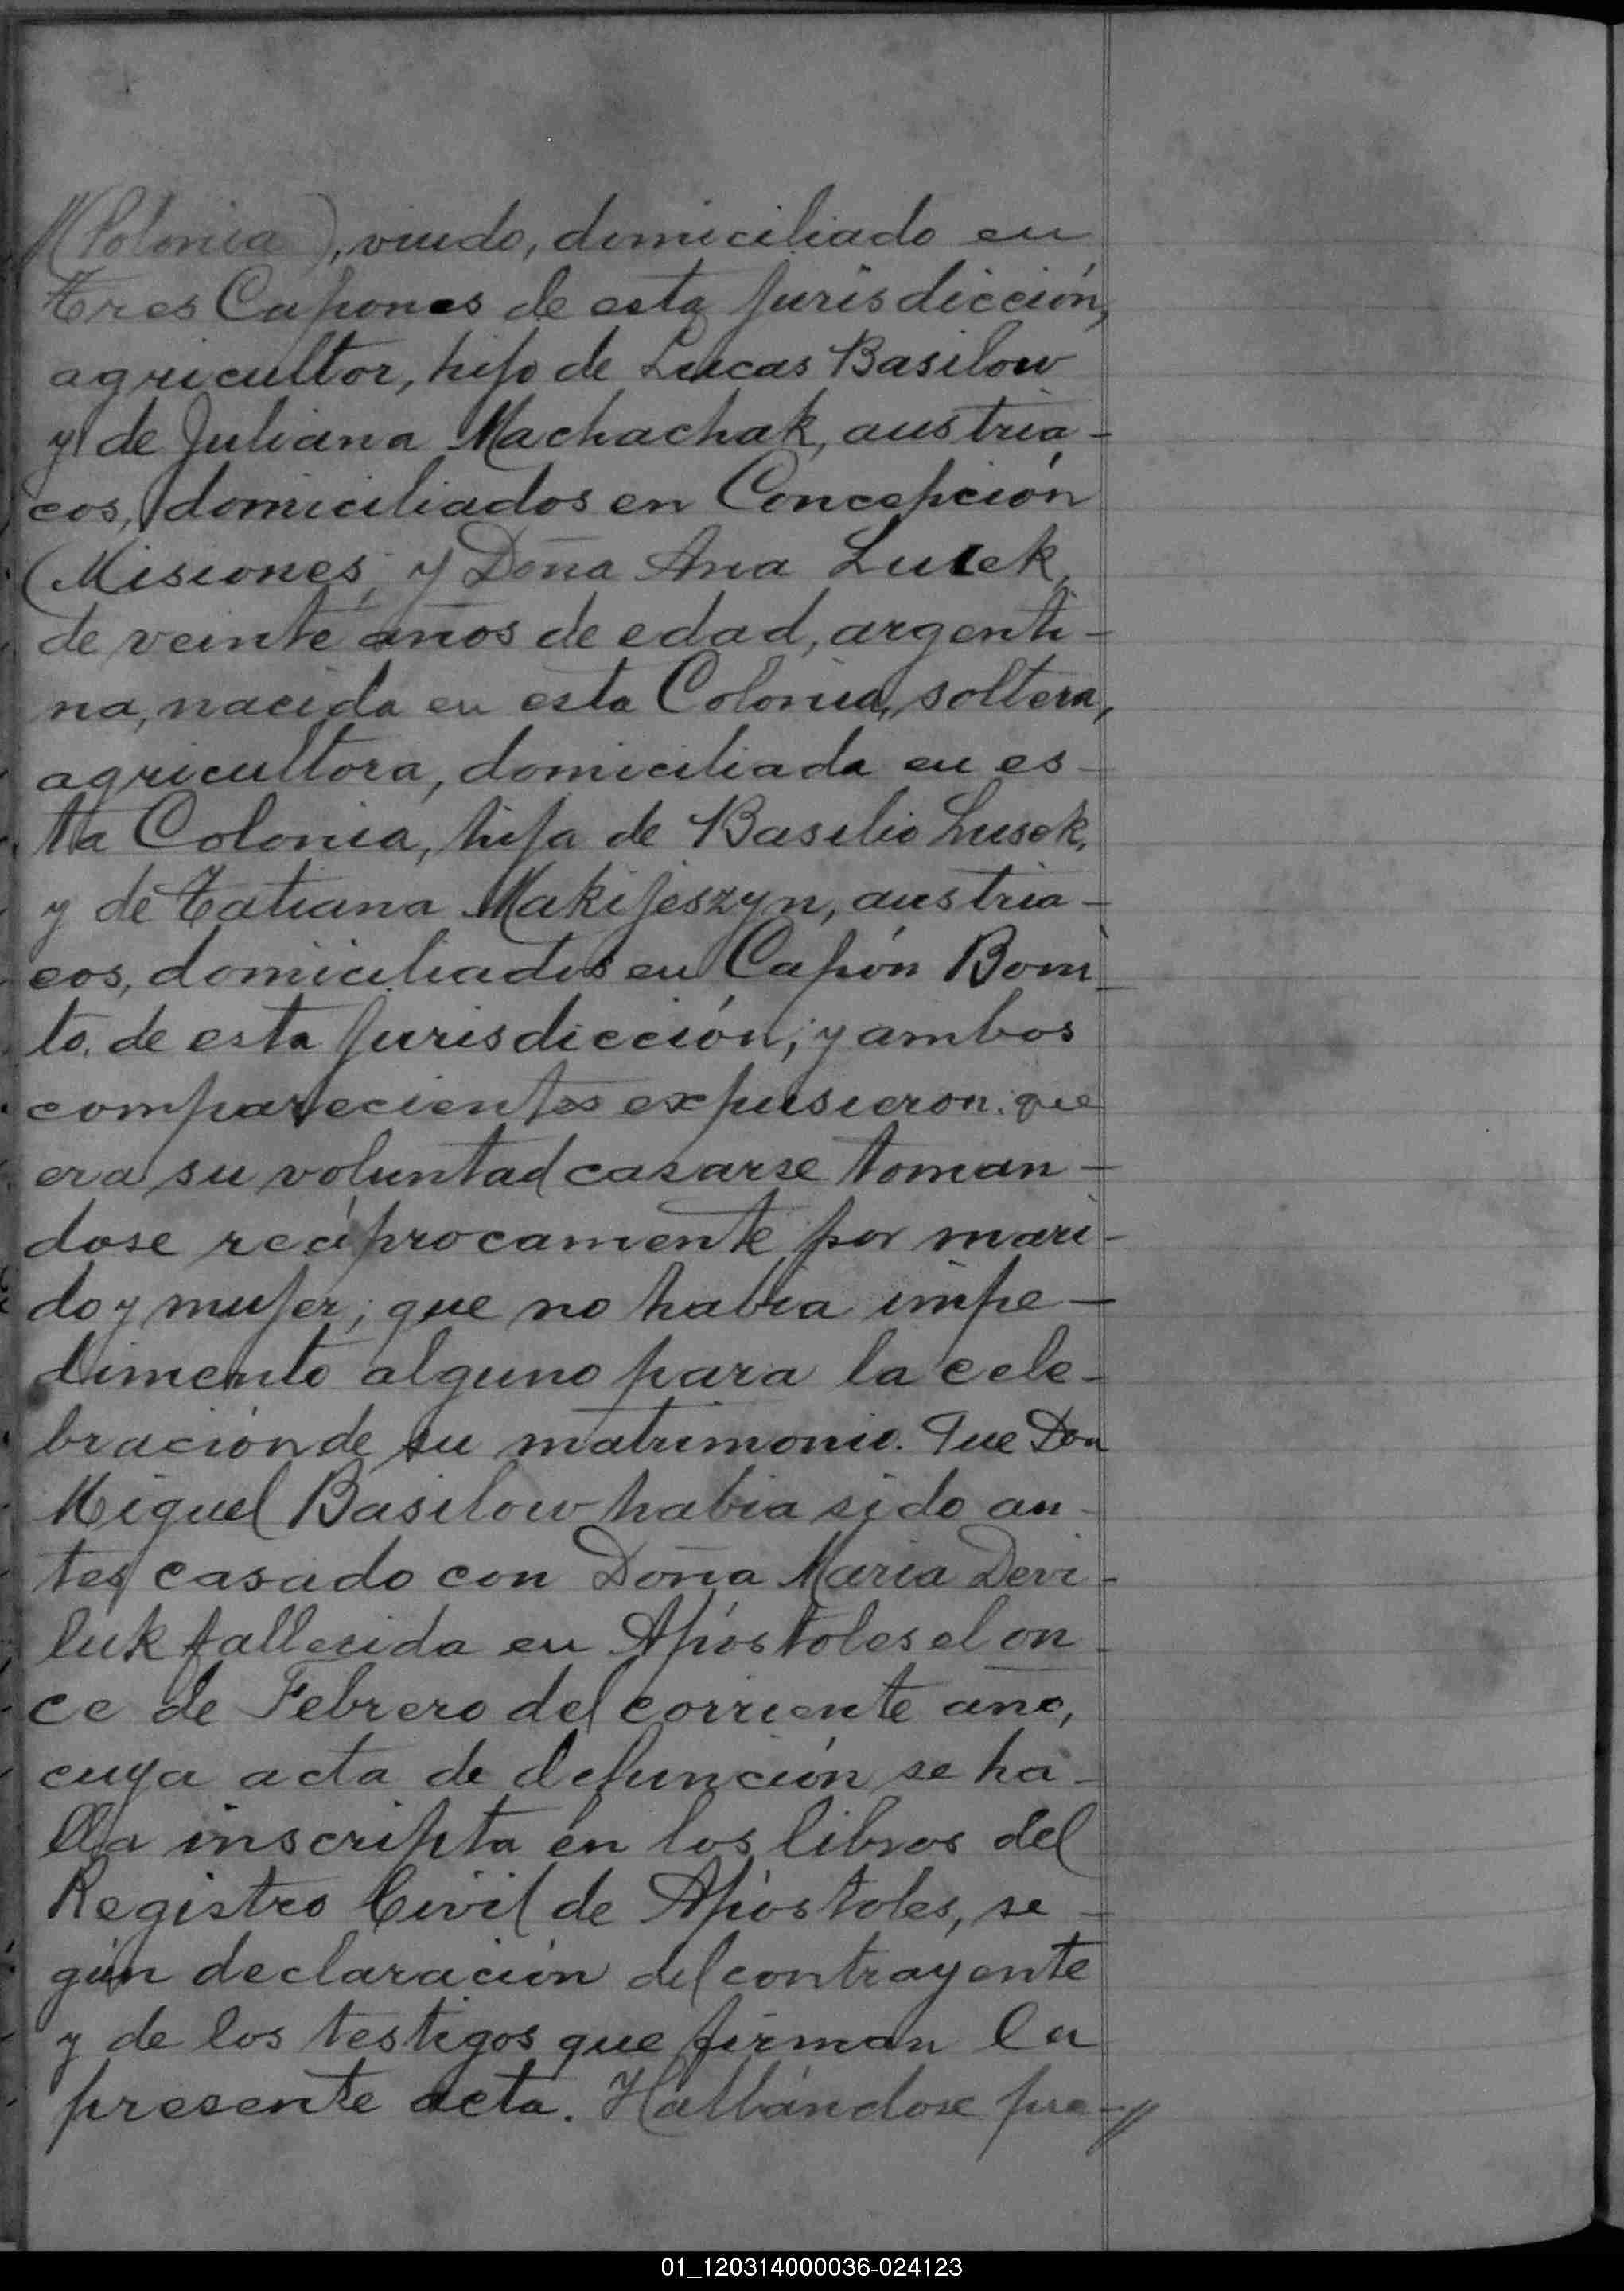 //(Polonia), viudo, domiciliado en
Tres Capones de esta jurisdicción,
agricultor, hijo de Lucas Basilow
y de Juliana Machachak, austria-
cos, domiciliados en Concepción
(Misiones; y Doña Ana Lusek,
de veinte años de edad, argenti-
na, nacida en esta Colonia, soltera,
agricultora, domiciliada en es-
ta Colonia, hija de Basilio Lusek,
y de Tatiana Makijeszyn, austria-
cos, domiciliados en Capón Boni-
to, de esta jurisdicción; y ambos
comparecientes expusieron: que
era su voluntad casarse toman-
dose recíprocamente por mari-
do y mujer; que no habia impe-
dimento alguno para la cele-
bración de su matrimonio. Que Don
Miguel Basilow habia sido an-
tes casado con Doña Maria Devi-
luk fallecida en Apóstoles el on-
ce de Febrero del corriente año,
cuya acta de defunción se ha-
lla inscripta en los libros del
Registro Civil de Apóstoles, se-
gún declaración del contrayente
y de los testigos que firman la
presente acta. Hallándose pre-//
01_120314000036-024123